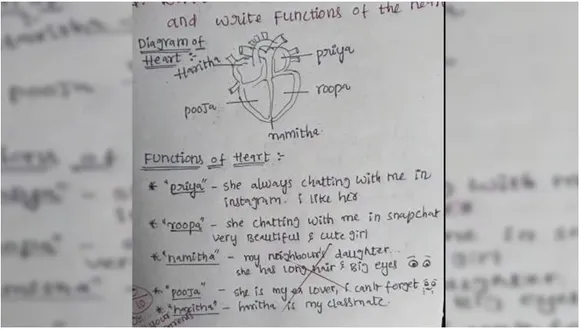 and write Functions of the heart
Diagram of
Heart :-
Haritha
priya
roopa
pooja
namitha
Functions of Heart :-
* "priya" - she always chatting with me in
instagram. i like her
* "roopa" - she chatting with me in snapchat
very Beautiful & cute girl
* "namitha" - my neighbour's daughter...
she has long hair & Big eyes
* "pooja" - she is my lover, i can't forget
* "haritha" - haritha is my classmate.